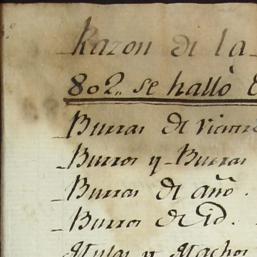 Razon de la
802,, se halló
Burras de vientre
Burros y Burras
Burras de año.
Burros de Id.
Mulas y Machos